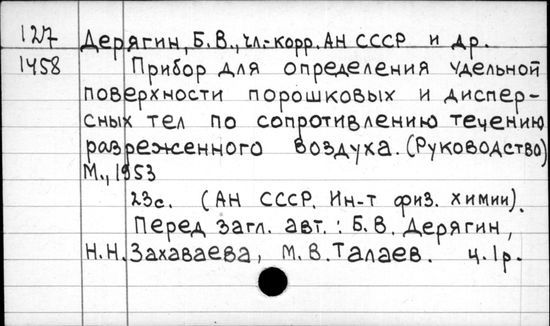 127 Дерягин, Б.В., чл.-корр. АН СССР и др.
1458 Прибор для определения удельной
поверхности порошковых и диспер-
сных тел по сопротивлению течению
разреженного воздуха. (Руководство)
М., 1953
23с. (АН СССР. Ин-т физ. химии).
Перед загл. авт.: Б.В. Дерягин,
Н.Н. Захаваева, М.В. Талаев. ц. 1р.